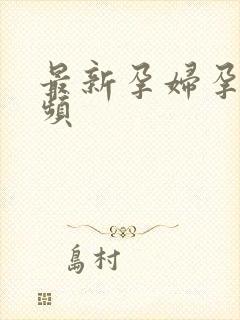 最新孕婦孕
頻
島村